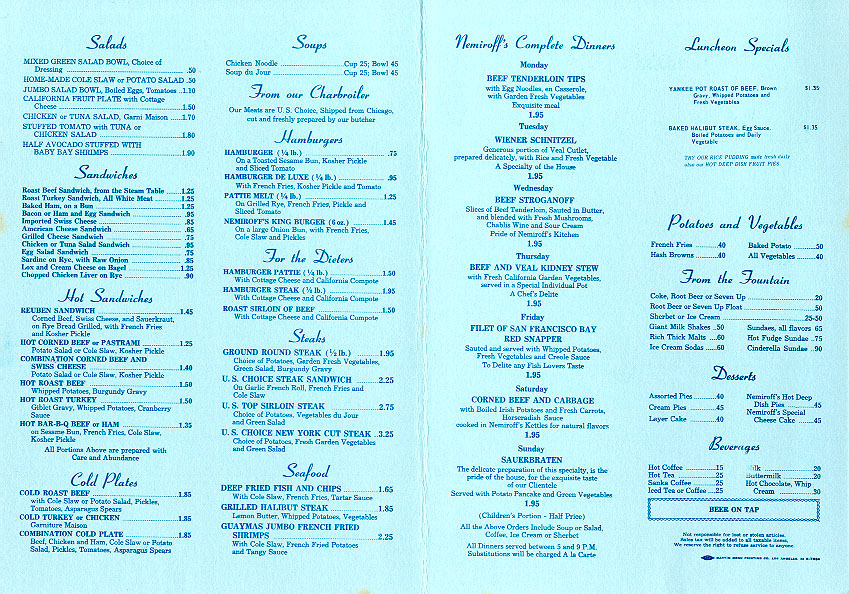 Salads
MIXED GREEN SALAD BOWL, Choice of
Dressing .50
HOME-MADE COLE SLAW or POTATO SALAD .50
JUMBO SALAD BOWL, Boiled Eggs, Tomatoes ..1.10
CALIFORNIA FRUIT PLATE with Cottage
Cheese 1.50
CHICKEN or TUNA SALAD, Garni Maison 1.70
STUFFED TOMATO with TUNA or
CHICKEN SALAD 1.80
HALF AVOCADO STUFFED with
BABY BAY SHRIMPS 1.90
Sandwiches
Roast Beef Sandwich, from the Steam Table 1.25
Roast Turkey Sandwich, All White Meat 1.25
Baked Ham, on a Bun 1.25
Bacon or Ham and Egg Sandwich .95
Imported Swiss Cheese .85
American Cheese Sandwich .65
Grilled Cheese Sandwich .75
Chicken or Tuna Salad Sandwich .95
Egg Salad Sandwich .75
Sardine on Rye, with Raw Onion .85
Lox and Cream Cheese on Bagel 1.25
Chopped Chicken Liver on Rye .90
Hot Sandwiches
REUBEN SANDWICH 1.45
Corned Beef, Swiss Cheese, and Sauerkraut,
on Rye Bread Grilled, with French Fries
and Kosher Pickle
HOT CORNED BEEF or PASTRAMI 1.25
Potato Salad or Cole Slaw, Kosher Pickle
COMBINATION CORNED BEEF AND
SWISS CHEESE 1.40
Potato Salad or Cole Slaw, Kosher Pickle
HOT ROAST BEEF 1.50
Whipped Potatoes, Burgundy Gravy
HOT ROAST TURKEY 1.50
Giblet Gravy, Whipped Potatoes, Cranberry
Sauce
HOT BAR-B-Q BEEF or HAM 1.35
on Sesame Bun, French Fries, Cole Slaw,
Kosher Pickle
All Portions Above are prepared with
Care and Abundance
Cold Plates
COLD ROAST BEEF 1.85
with Cole Slaw or Potato Salad, Pickles,
Tomatoes, Asparagus Spears
COLD TURKEY or CHICKEN 1.85
Garniture Maison
COMBINATION COLD PLATE 1.85
Beef, Chicken and Ham, Cole Slaw or Potato
Salad, Pickles, Tomatoes, Asparagus Spears
Soups
Chicken Noodle Cup 25; Bowl 45
Soup du Jour Cup 25; Bowl 45
From our Charbroiler
Our Meats are U.S. Choice, Shipped from Chicago,
cut and freshly prepared by our butcher
Hamburgers
HAMBURGER (¼ lb.) .75
On a Toasted Sesame Bun, Kosher Pickle
and Sliced Tomato
HAMBURGER DE LUXE (¼ lb.) .95
With French Fries, Kosher Pickle and Tomato
PATTIE MELT (¼ lb.) 1.25
On Grilled Rye, French Fries, Pickle and
Sliced Tomato
NEMIROFF'S KING BURGER (6 oz.) 1.45
on a large Onion Bun, with French Fries,
Cole Slaw and Pickles
For the Dieters
HAMBURGER PATTIE (¼ lb.) 1.50
With Cottage Cheese and California Compote
HAMBURGER STEAK (½ lb.) 1.95
With Cottage Cheese and California Compote
ROAST SIRLOIN OF BEEF 1.50
With Cottage Cheese and California Compote
Steaks
GROUND ROUND STEAK (½ lb.) 1.95
Choice of Potatoes, Garden Fresh Vegetables,
Green Salad, Burgundy Gravy
U. S. CHOICE STEAK SANDWICH 2.25
On Garlic French Roll, French Fries and
Cole Slaw
U. S. TOP SIRLOIN STEAK 2.75
Choice of Potatoes, Vegetables du Jour
and Green Salad
U. S. CHOICE NEW YORK CUT STEAK ..3.25
Choice of Potatoes, Fresh Garden Vegetables
and Green Salad
Seafood
DEEP FRIED FISH AND CHIPS 1.65
With Cole Slaw, French Fries, Tartar Sauce
GRILLED HALIBUT STEAK 1.85
Lemon Butter, Whipped Potatoes, Vegetables
GUAYMAS JUMBO FRENCH FRIED
SHRIMPS 2.25
With Cole Slaw, French Fried Potatoes
and Tangy Sauce
Nemiroff's Complete Dinners
Monday
BEEF TENDERLOIN TIPS
with Egg Noodles, en Casserole,
with Garden Fresh Vegetables
Exquisite meal
1.95
Tuesday
WIENER SCHNITZEL
Generous portion of Veal Cutlet,
prepared delicately, with Rice and Fresh Vegetable
A Specialty of the House
1.95
Wednesday
BEEF STROGANOFF
Slices of Beef Tenderloin, Sauted in Butter,
and blended with Fresh Mushrooms,
Chablis Wine and Sour Cream
Pride of Nemiroff's Kitchen
1.95
Thursday
BEEF AND VEAL KIDNEY STEW
with Fresh California Garden Vegetables,
served in a Special Individual Pot
A Chef's Delite
1.95
Friday
FILET OF SAN FRANCISCO BAY
RED SNAPPER
Sauted and served with Whipped Potatoes,
Fresh Vegetables and Creole Sauce
To Delite any Fish Lovers Taste
1.95
Saturday
CORNED BEEF AND CABBAGE
with Boiled Irish Potatoes and Fresh Carrots,
Horseradish Sauce
cooked in Nemiroff's Kettles for natural flavors
1.95
Sunday
SAUERBRATEN
The delicate preparation of this specialty, is the
pride of the house, for the exquisite taste
of our Clientele
Served with Potato Pancake and Green Vegetables
1.95
(Children's Portion - Half Price)
All the Above Orders Include Soup or Salad,
Coffee, Ice Cream or Sherbet
All Dinners served between 5 and 9 P.M.
Substitutions will be charged A la Carte
Luncheon Specials
YANKEE POT ROAST OF BEEF, Brown $1.35
Gravy, Whipped Potatoes and
Fresh Vegetables
BAKED HALIBUT STEAK, Egg Sauce, $1.35
Boiled Potatoes and Daily
Vegetable
TRY OUR RICE PUDDING made fresh daily
also our HOT DEEP DISH FRUIT PIES.
Potatoes and Vegetables
French Fries .40 Baked Potato .50
Hash Browns .40 All Vegetables .40
From the Fountain
Coke, Root Beer or Seven Up .20
Root Beer or Seven Up Float .50
Sherbet or Ice Cream .25-50
Giant Milk Shakes ..50 Sundaes, all flavors 65
Rich Thick Malts ....60 Hot Fudge Sundae ..75
Ice Cream Sodas .....60 Cinderella Sundae ..90
Desserts
Assorted Pies .40 Nemiroff's Hot Deep
Dish Pies .45
Cream Pies .45 Nemiroff's Special
Layer Cake .40 Cheese Cake .45
Beverages
Hot Coffee .15 ilk .20
Hot Tea .25 Buttermilk .20
Sanka Coffee .25 Hot Chocolate, Whip
Iced Tea or Coffee ....25 Cream .30
BEER ON TAP
Not responsible for lost or stolen articles.
Sales tax will be added to all taxable items.
We reserve the right to refuse service to anyone.